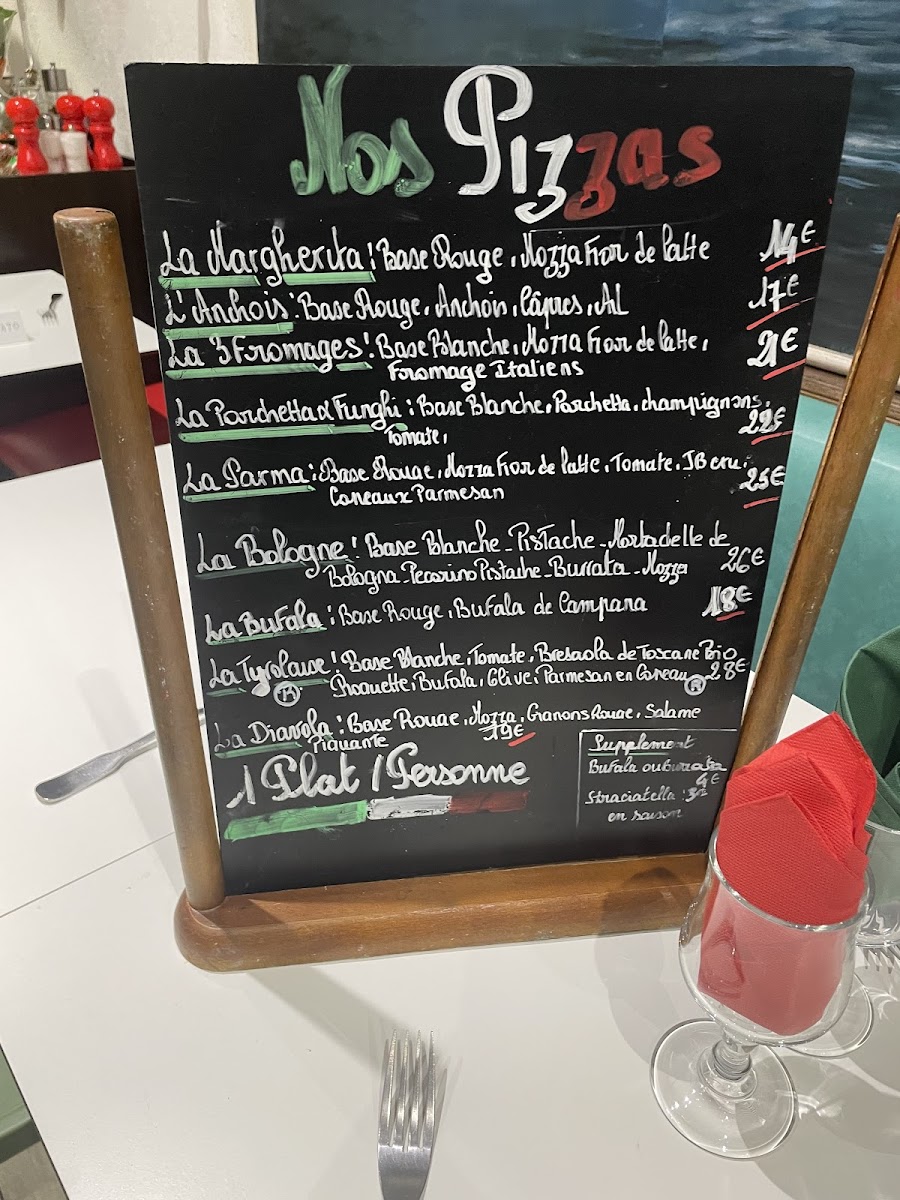 Nos Pizzas
La Margherita : Base Rouge, Mozza Fior de latte 14€
L'Anchois : Base Rouge, Anchois, Câpres, AL 17€
La 3 Fromages : Base Blanche, Mozza Fior de latte, 21€
Fromage Italiens
La Porchetta & Funghi : Base Blanche, Porchetta, champignons,
Tomate,
La Parma : Base Rouge, Mozza Fior de latte, Tomate, JB cru, 25€
Copeaux Parmesan
La Bologne : Base Blanche - Pistache - Mortadelle de
Bologna - Pecorino Pistache - Burrata - Mozza 26€
La Bufala : Base Rouge, Bufala de Campana 18€
La Tyrolause : Base Blanche, Tomate, Bresaola de Toscane Bio
Roquette, Bufala, Olive, Parmesan en Copeau 28€
La Diavola : Base Rouge, Mozza, Oignons Rouge, Salame
Piquante 19€
1 Plat / Personne
Supplement
Bufala ou Burrata
4€
Straciatella : 3€
en saison